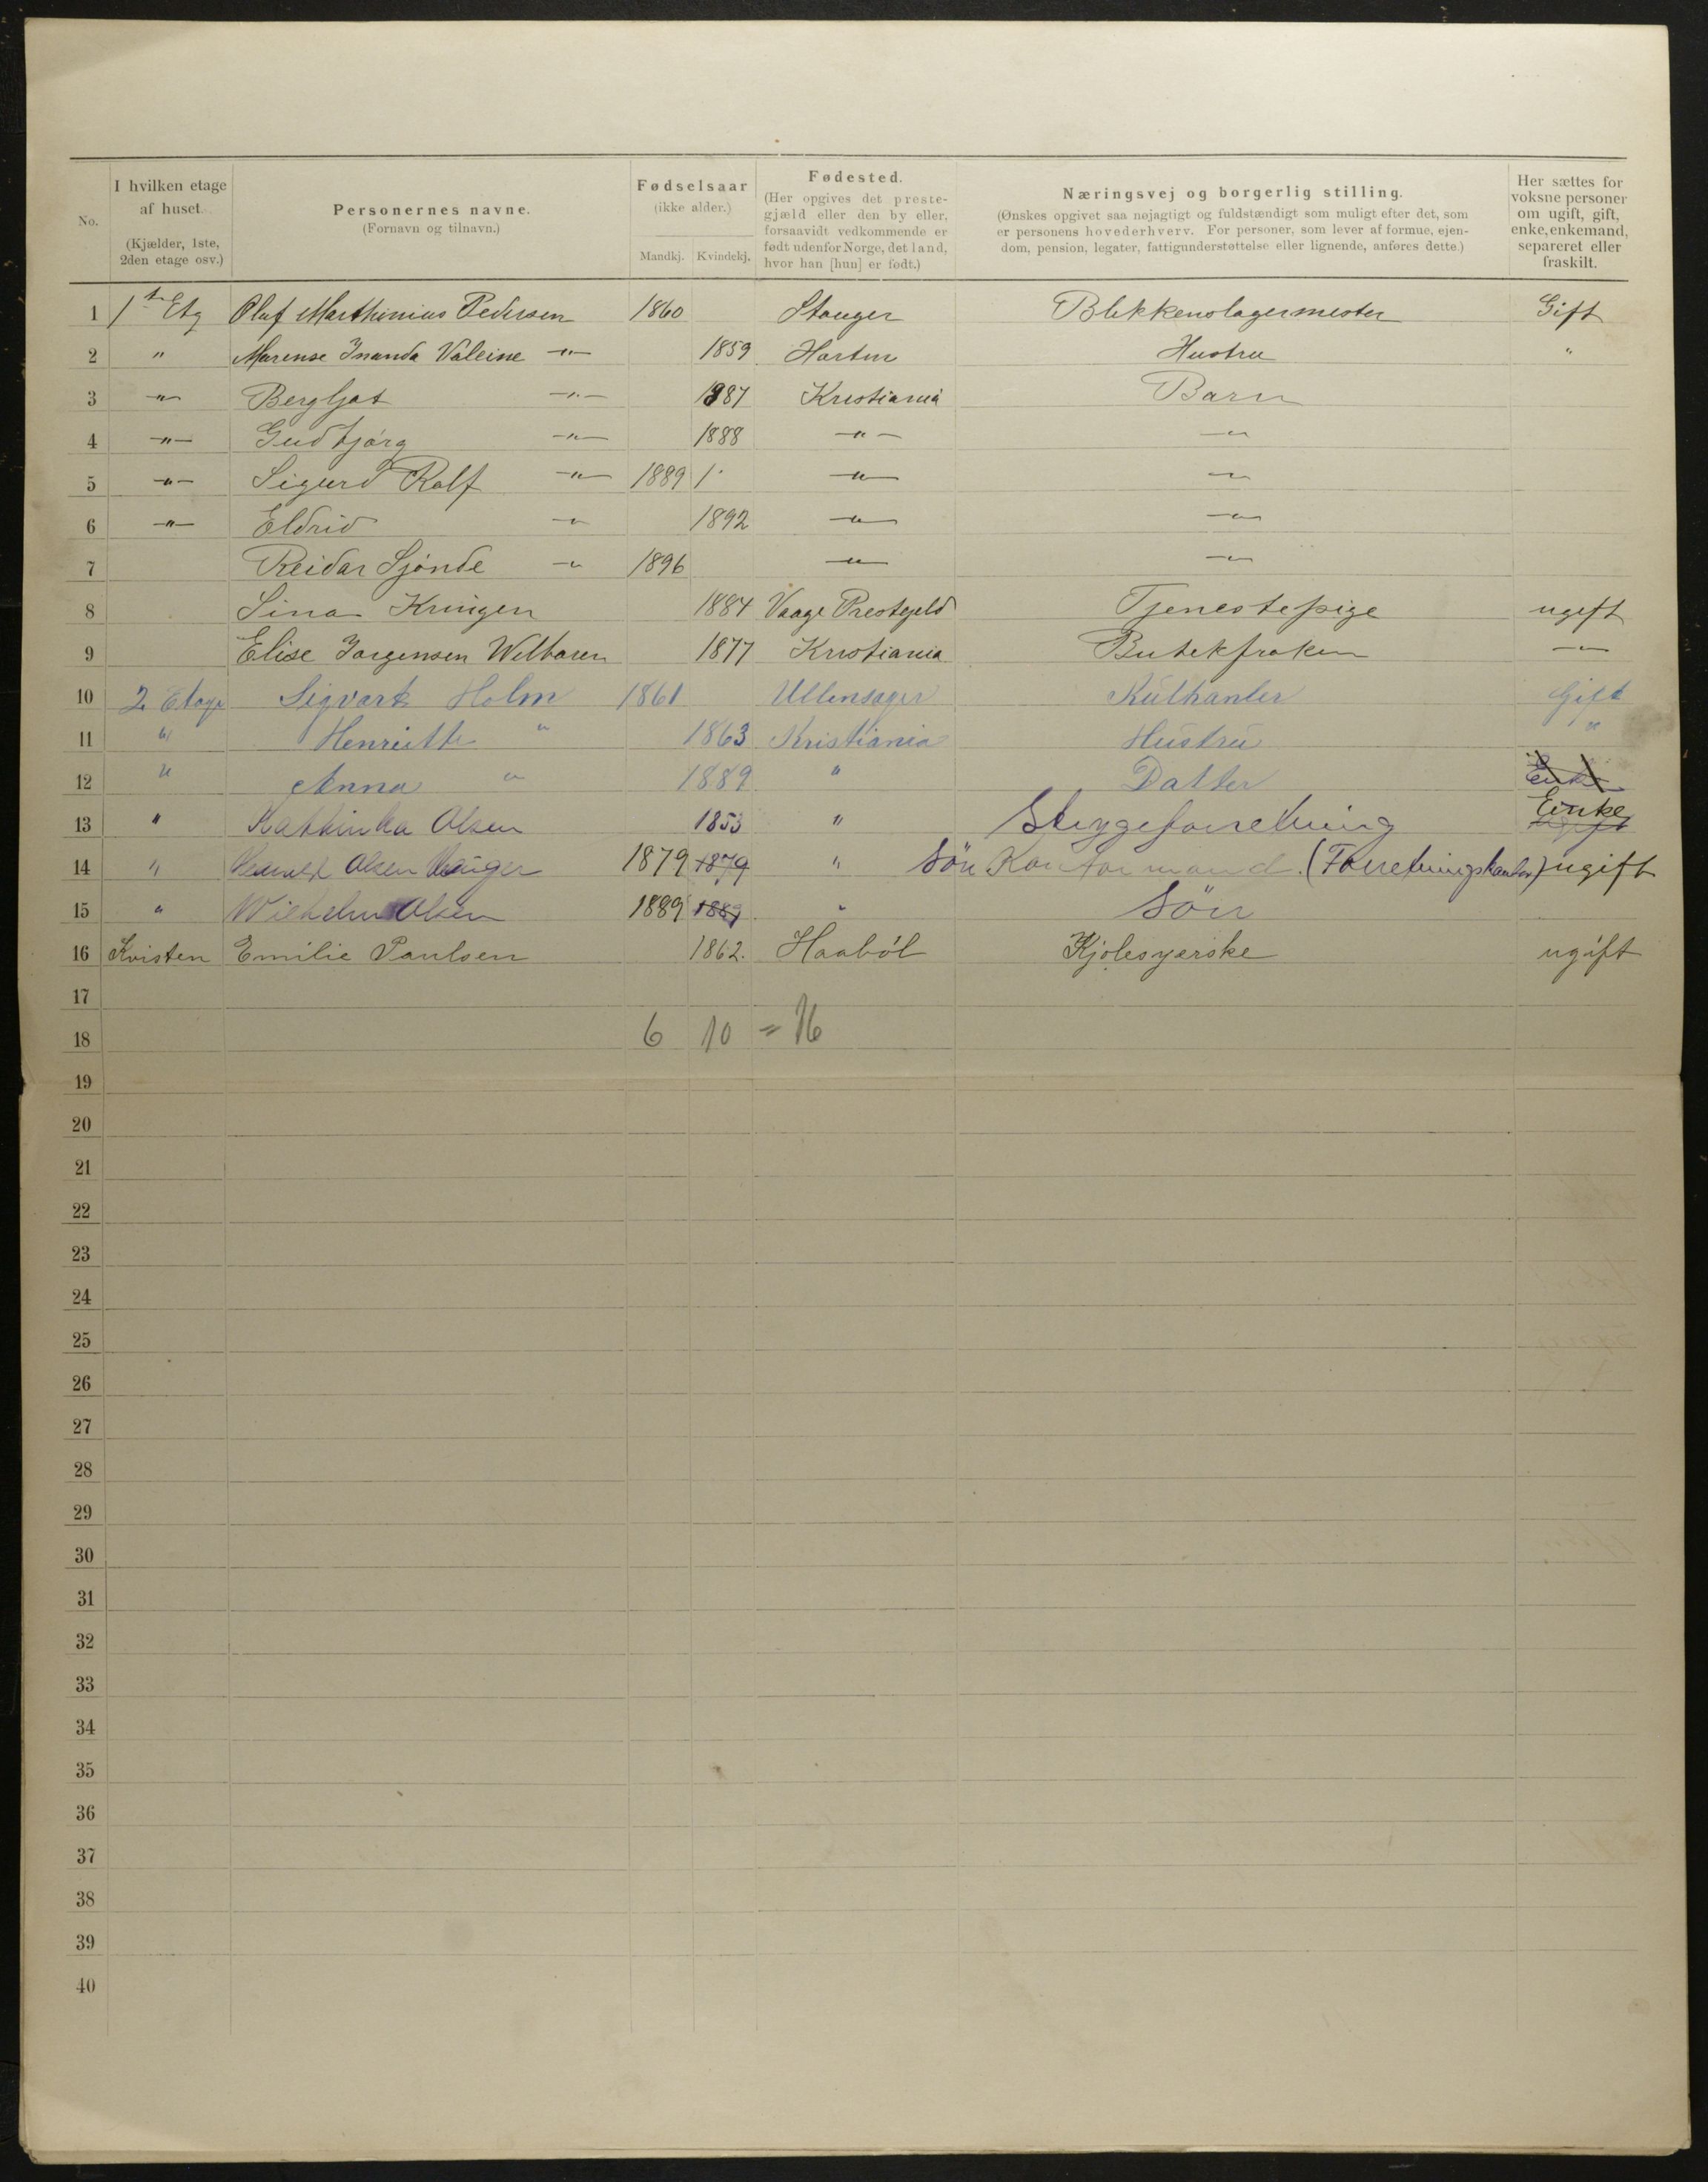 No.
I hvilken etage af huset. (Kjælder, 1ste, 2den etage osv.)
Personernes navne. (Fornavn og tilnavn.)
Fødselsaar (ikke alder.) Mandkj. Kvindekj.
Fødested. (Her opgives det prestegjæld eller den by eller, forsaavidt vedkommende er født udenfor Norge, det land, hvor han [hun] er født.)
Næringsvej og borgerlig stilling. (Ønskes opgivet saa nøjagtigt og fuldstændigt som muligt efter det, som er personens hovederhverv. For personer, som lever af formue, ejendom, pension, legater, fattigunderstøttelse eller lignende, anføres dette.)
Her sættes for voksne personer om ugift, gift, enke, enkemand, separeret eller fraskilt.
1 1ste Etg Oluf Marthinius Pedersen 1860 Stange Blikkenslagermester Gift
2 " Marense Inanda Valeine -"- 1859 Horten Hustru "
3 -"- Bergljot -"- 1887 Kristiania Barn
4 -"- Gudbjørg -"- 1888 -"- -"-
5 -"- Sigurd Rolf -"- 1889 -"- -"-
6 -"- Eldrid -"- 1892 -"- -"-
7 Reidar Sjønde -"- 1896 -"- -"-
8 Sina Kringen 1884 Vaage Prestegjeld Tjenestepige ugift
9 Elise Jørgensen 1877 Kristiania Butikfrøken -"-
10 2 Etage Sigvart Holm 1861 Ullensager Kulhanler Gift
11 " Henriette " 1863 Kristiania Hustru "
12 " Anna " 1889 " Datter Enke
13 " Kathinka Olsen 1853 " Strygeforretning Enke
14 " Olsen 1879 1879 " Søn Kontormand. (Forretningskontor) ugift
15 " Wilhelm Olsen 1889 1889 " Søn
16 Kvisten Emilie Paulsen 1862. Haabøl Kjolesyerske ugift
17
18 6 10 = 16
19
20
21
22
23
24
25
26
27
28
29
30
31
32
33
34
35
36
37
38
39
40